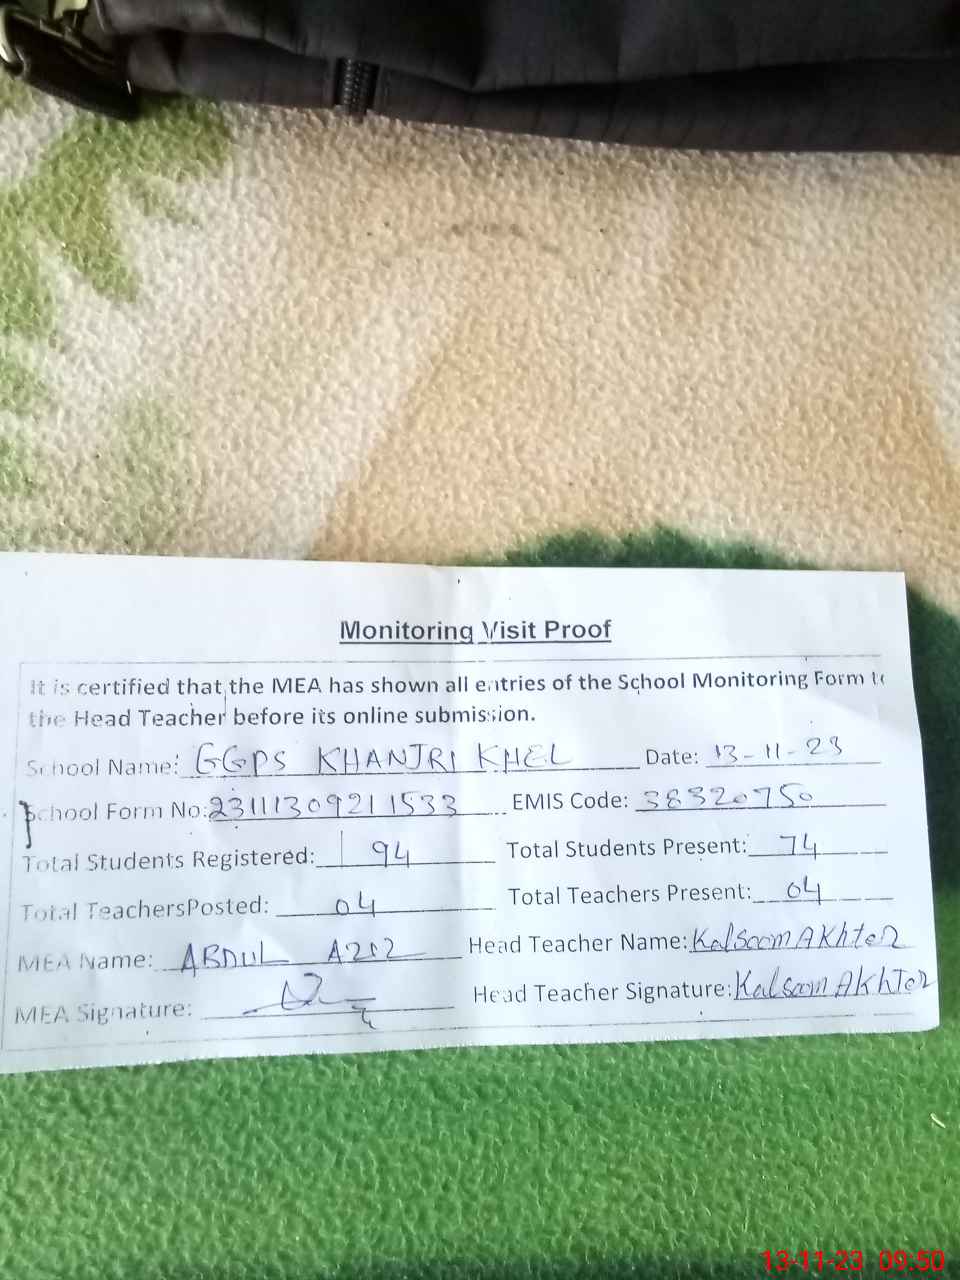 Monitoring Visit Proof
It is certified that the MEA has shown all entries of the School Monitoring Form to
the Head Teacher before its online submission.
School Name: GGPS KHANJRI KHEL Date: 13-11-23
School Form No: 23111309211533 EMIS Code: 38320750
Total Students Registered: 94 Total Students Present: 74
Total TeachersPosted: 04 Total Teachers Present: 04
MEA Name: ABDUL AZIZ Head Teacher Name: Kalsoom AKhter
MEA Signature: Head Teacher Signature: Kalsoom AKhTer
13-11-23 09:50